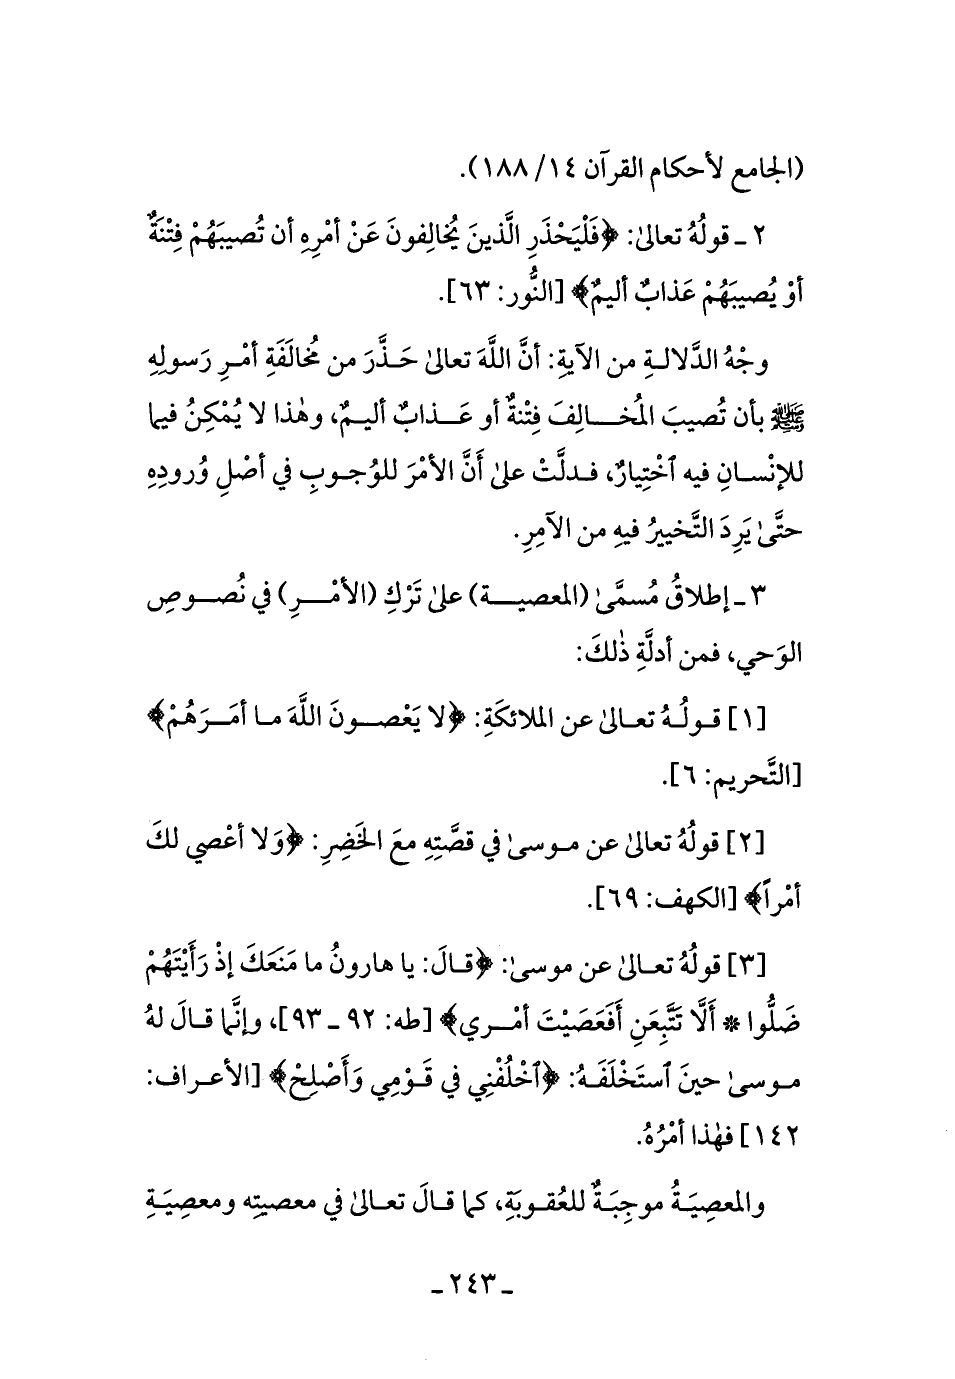 (الجامع لأحكام القرآن ١٤/ ١٨٨).
٢ ـ قولُهُ تعالىٰ: ﴿فَلْيَحْذَرِ الَّذينَ يُخالِفونَ عَنْ أمْرِهِ أن تُصيبَهُمْ فِتْنَةٌ
أوْ يُصيبَهُمْ عَذابٌ أليمٌ﴾ [النُّور: ٦٣].
وجْهُ الدَّلالـةِ من الآيةِ: أنَّ اللَّهَ تعالىٰ حَـذَّرَ من مُخالَفَةِ أمْـرِ رَسولِهِ
ﷺ بأن تُصيبَ المُخـــالِفَ فِتْنةٌ أو عَــذابٌ أليمٌ، وهٰذا لا يُمْكِنُ فيما
للإنْســانِ فيه ٱخْتِيارٌ، فـدلَّتْ علىٰ أَنَّ الأمْرَ للوُجــوبِ في أصْلِ وُرودِهِ
حتَّىٰ يَرِدَ التَّخييرُ فيهِ من الآمِرِ.
٣ ـ إطلاقُ مُسمَّىٰ (المعصيــة) علىٰ تَرْكِ (الأمْــرِ) في نُصــوصِ
الوَحي، فمن أدلَّةِ ذٰلكَ:
[١] قـولُـهُ تعـالىٰ عن الملائكَةِ: ﴿لا يَعْصـــونَ اللَّهَ مـا أمَــرَهُمْ﴾
[التَّحريم: ٦].
[٢] قولُهُ تعالىٰ عن مـوسىٰ في قصَّتِهِ معَ الخَضِرِ: ﴿وَلا أعْصي لكَ
أمْراً﴾ [الكهف: ٦٩].
[٣] قولُهُ تعـالىٰ عن موسىٰ: ﴿قـالَ: يا هارونُ ما مَنَعَكَ إذْ رَأَيْتَهُمْ
ضَلُّوا * أَلَّا تَتَّبِعَنِ أَفَعَصَيْتَ أمْـري﴾ [طه: ٩٢ ـ ٩٣]، وإنَّما قـالَ لهُ
مـوسىٰ حينَ ٱستَخْلَفَـهُ: ﴿ٱخْلُفْنِي في قَـوْمِي وَأَصْلِحْ﴾ [الأعـراف:
١٤٢] فهٰذا أمْرُهُ.
والمعصِيَةُ موجِبَةٌ للعُقـوبَةِ، كما قـالَ تعـالىٰ في معصيتِه ومعصِيَةِ
ـ ٢٤٣ ـ